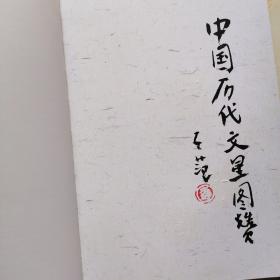 中国历代文星图赞